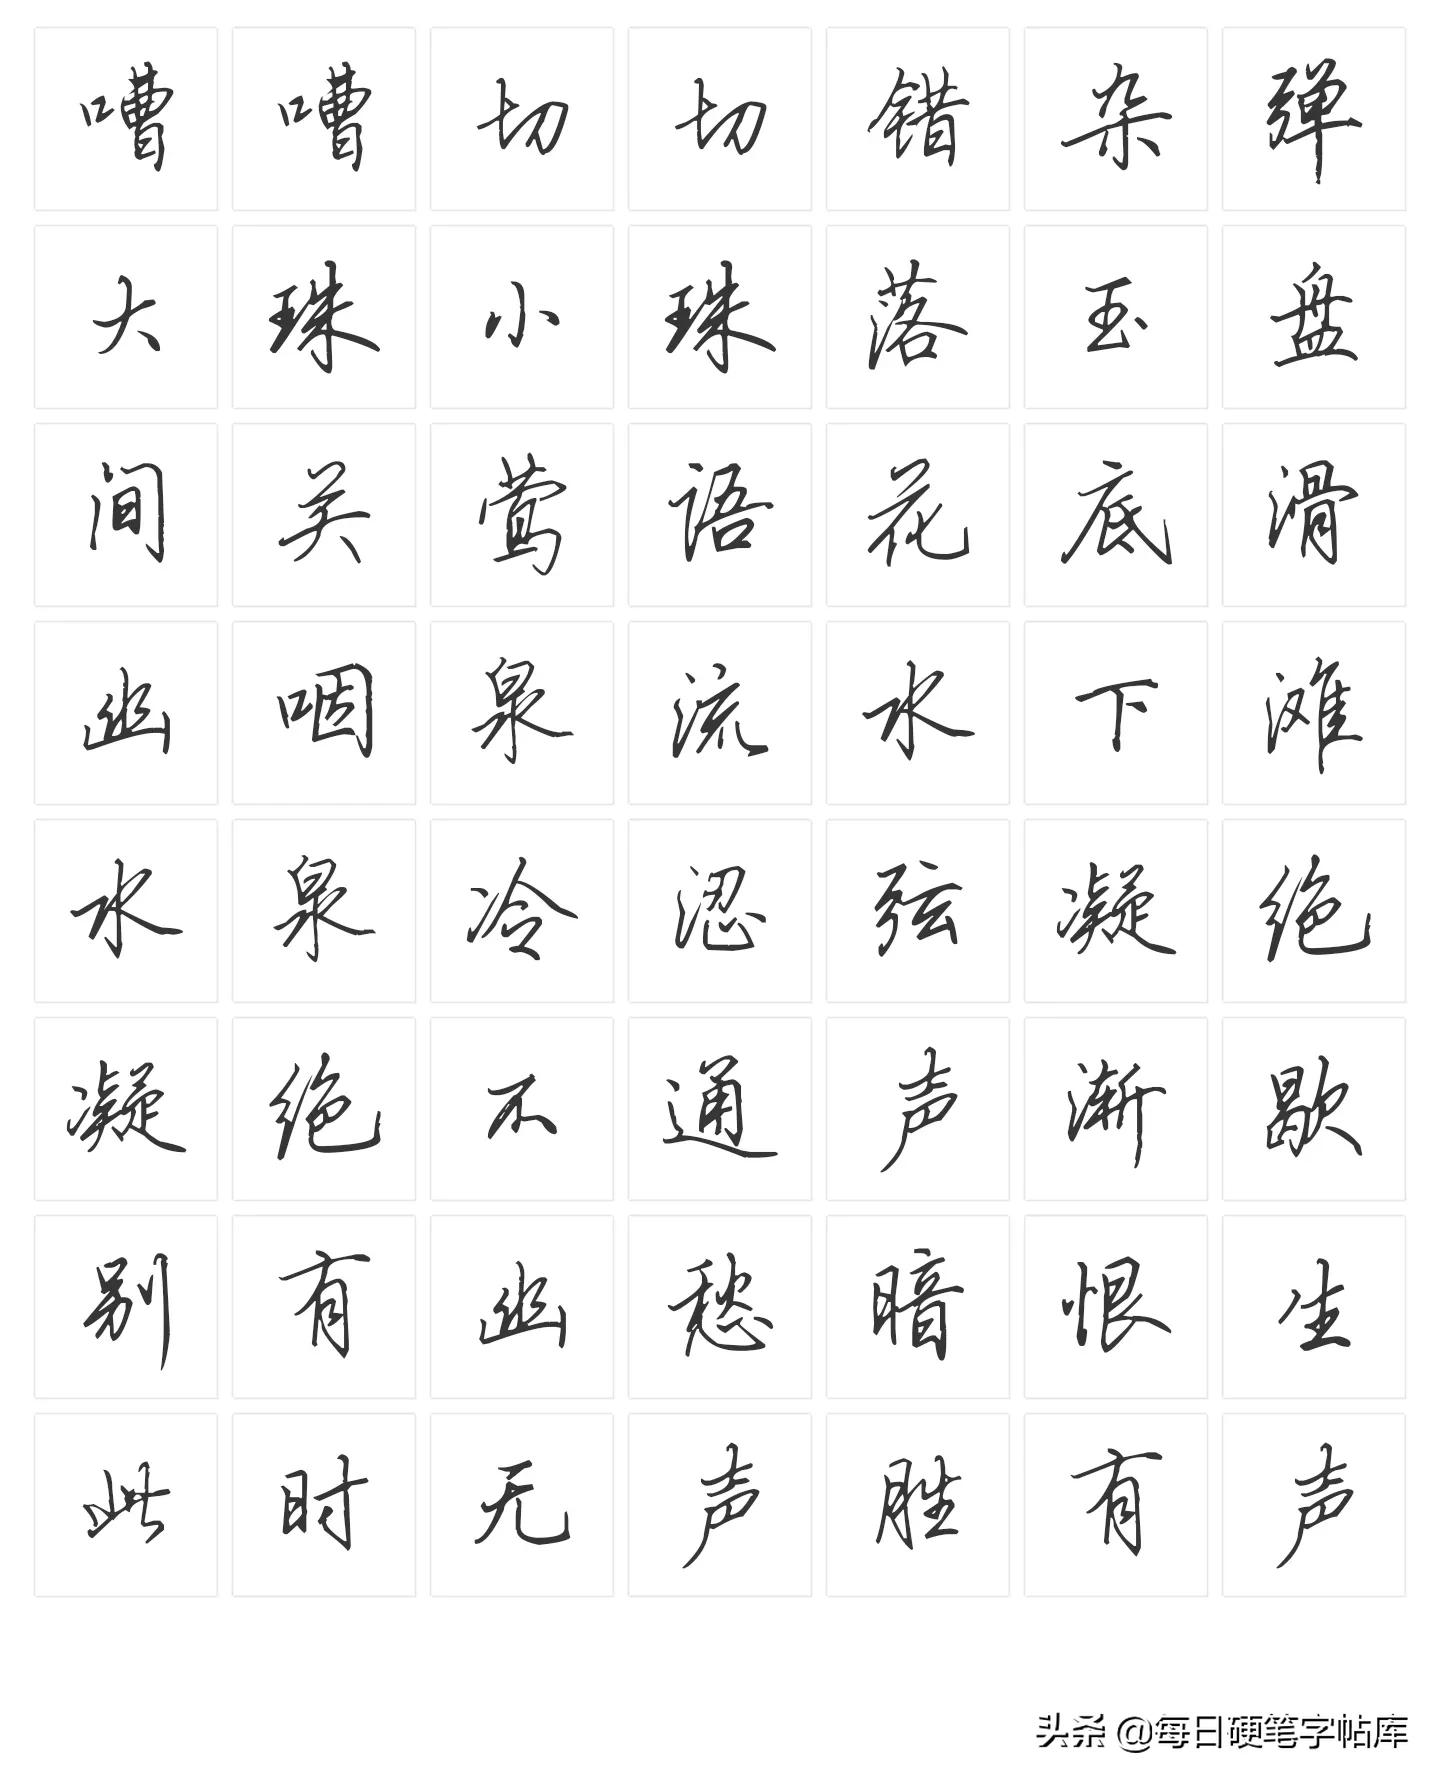 嘈嘈切切错杂弹
大珠小珠落玉盘
间关莺语花底滑
幽咽泉流水下滩
水泉冷涩弦凝绝
凝绝不通声渐歇
别有幽愁暗恨生
此时无声胜有声
头条 @每日硬笔字帖库